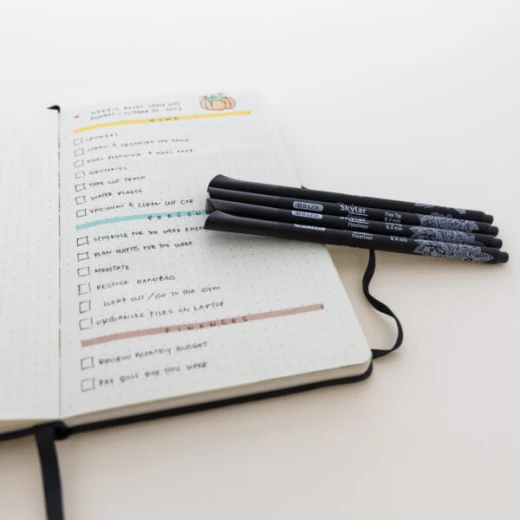 HOME
LAUNDRY
CLEAN & ORGANIZE THE HOUSE
MEAL PLANNING & MEAL PREP
GROCERIES
TAKE OUT TRASH
WATER PLANTS
VACUUM & CLEAN OUT CAR
PERSON
SCHEDULE FOR THE WEEK AHEAD
PLAN OUTFITS FOR THE WEEK
MEDITATE
RESTOCK HANDBAG
WORK OUT / GO TO THE GYM
ORGANIZE FILES ON LAPTOP
FINANCES
REVIEW MONTHLY BUDGET
PAY BILLS DUE THIS WEEK
Skytar
Fineliner
0.4 mm